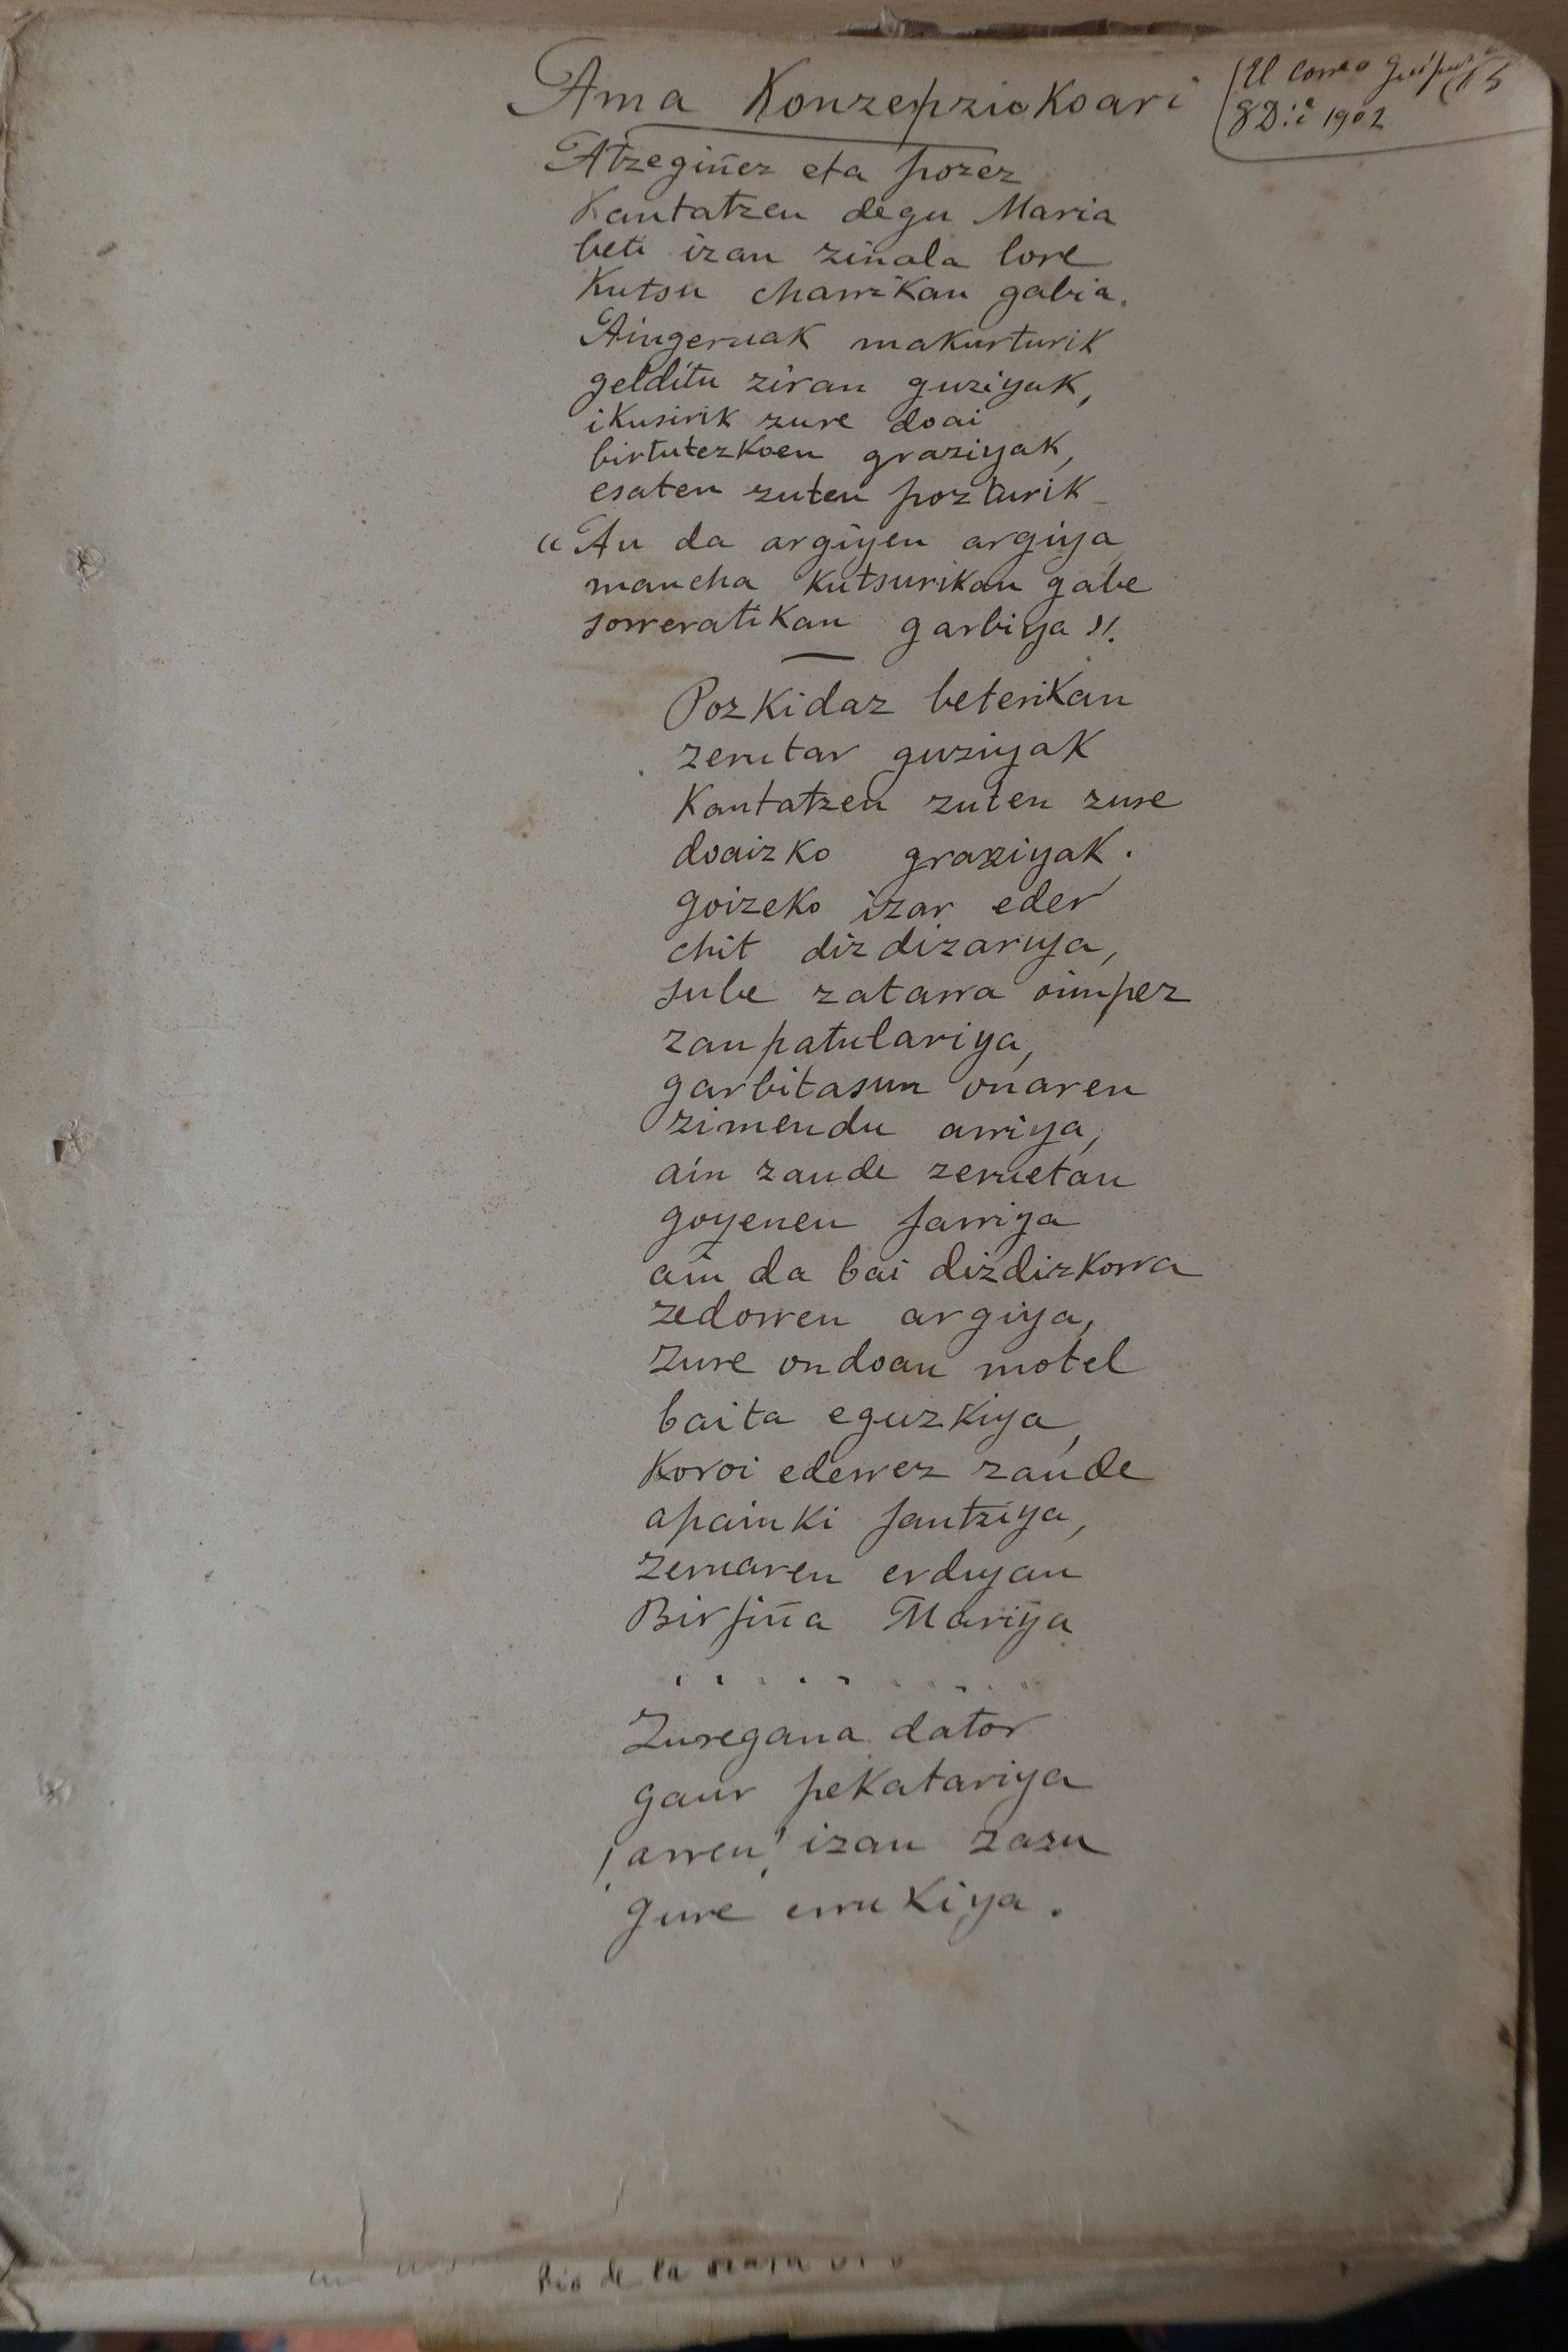 Ama Konzepziokoari
El Correo Guipuz
15
8 D.e 1902
Atzegiñez eta pozez
Kantatzen degu Maria
beti izan ziñala lore
Kutsu charrikan gabia.
Aingeruak makurturik
gelditu ziran guziyak,
ikusirik zure doai
birtutezkoen graziyak,
esaten zuten pozturik
"Au da argiyen argiya
mancha kutsurikan gabe
sorreratikan garbiya".
Pozkidaz beterikan
zerutar guziyak
Kantatzen zuten zure
doaizko graziyak.
goizeko izar eder
chit dizdizariya,
sube zatarra oinpez
zanpatulariya,
garbitasun onaren
zimendu arriya,
ain zaude zeruetan
goyenen jarriya
ain da bai dizdizkorra
zedorren argiya,
zure ondoan motel
baita eguzkiya,
Koroi ederrez zaude
apainki jantziya,
zeruaren erdiyan
Birjiña Mariya
. . . . . . . . . .
Zuregana dator
gaur pekatariya
¡arren! izan zazu
gure errukiya.
Rio de la